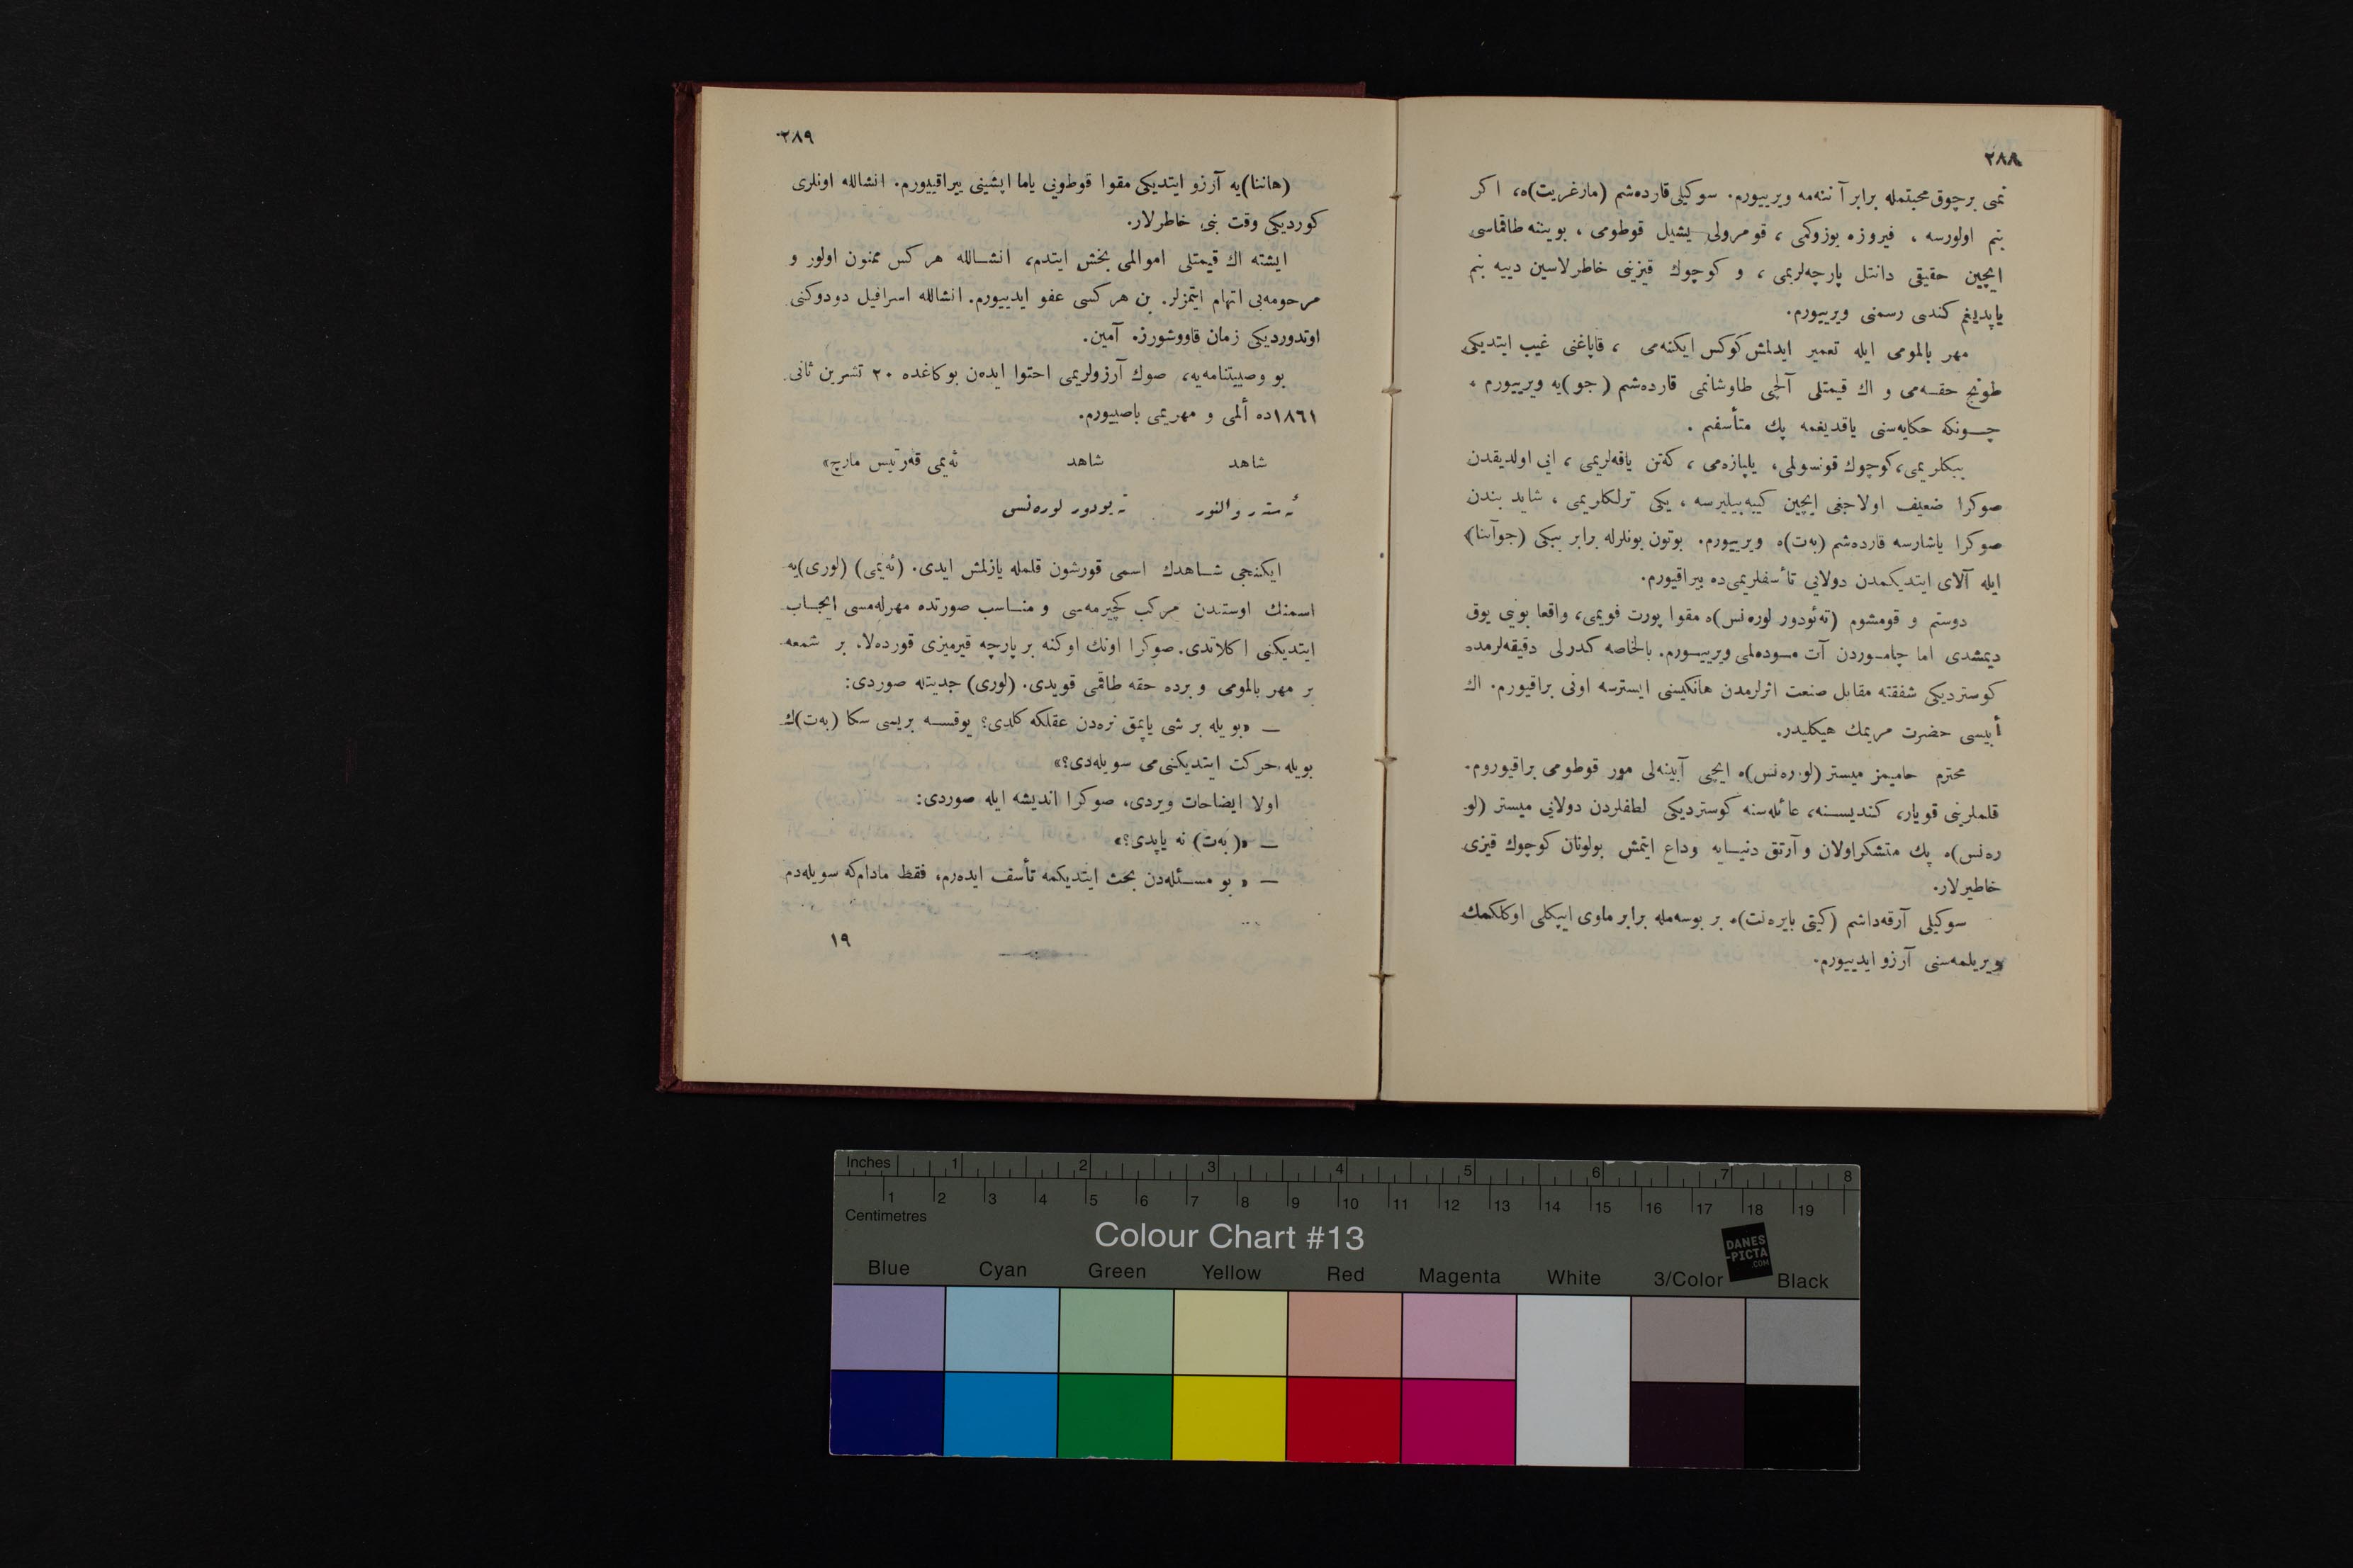 ٢٨٨
نمی برچوق محبتمله برابر آننه‌مه ویرییورم. سوکیلی قارده‌شم (مارغریت)ه، اکر
بنم اولورسه ، فیروزه یوزوکمی ، قومرولی یشیل قوطومی ، بویننه طاقماسی
ایچین حقیقی دانتل پارچه‌لریمی ، و کوچوك قیزینی خاطرلاسین دییه بنم
یاپدیغم کندی رسمنی ویرییورم.
مهر بالمومی ایله تعمیر ایدلمش کوکس ایکنه‌می ، قاپاغنی غیب ایتدیکی
طونج حقه‌می و اك قیمتلی آلچی طاوشانمی قارده‌شم (جو)یه ویرییورم .
چـونکه حکایه‌سنی یاقدیغمه پك متأسفم .
ببکلریمی، کوچوك قونسولمی، یلپازه‌می ، کتن یاقه‌لریمی ، ایی اولدیقدن
صوکرا ضعیف اولاجغی ایچین کییه‌بیلیرسه ، یکی ترلکلریمی ، شاید بندن
صوکرا یاشارسه قارده‌شم (به‌ت)ه ویرییورم. بوتون بونلرله برابر ببکی (جوآننا)
ایله آلای ایتدیکمدن دولایی تأسفلریمی‌ده بیراقیورم.
دوستم و قومشوم (ته‌ئودور لوره‌نس)ه مقوا پورت فویمی، واقعا بوینی یوق
دیمشدی اما چامـوردن آت مـوده‌لمی ویرییـورم. بالخاصه کدرلی دقیقه‌لرمده
کوستردیکی شفقته مقابل صنعت اثرلرمدن هانکیسنی ایسترسه اونی براقیورم. اك
أییسی حضرت مریمك هیکلیدر.
محترم حامیمز میستر (لوره‌نس)ه ایچی آیینه‌لی مور قوطومی براقیوروم.
قلملرینی قویار، کندیسـنه، عائله‌سنه کوستردیکی لطفلردن دولایی میستر (لو
ره‌نس)ه پك متشکر اولان و آرتق دنیـایه وداع ایتمش بولونان کوچوك قیزی
خاطیرلار.
سوکیلی آرقه‌داشم (کیتی بایره‌نت)ه بر بوسه‌مله برابر ماوی ایپکلی اوکلکمك
ویریلمه‌سنی آرزو ایدییورم.
٢٨٩
(هاننا)یه آرزو ایتدیکی مقوا قوطویی یاما ایشینی بیراقییورم. انشالله اونلری
کوردیکی وقت بنی خاطرلار.
ایشته اك قیمتلی اموالمی بخش ایتدم، انشـالله هرکس ممنون اولور و
مرحومه‌یی اتهام ایتمزلر. بن هرکسی عفو ایدییورم. انشالله اسرافیل دودوکنی
اوتدوردیکی زمان قاووشورز. آمین.
بو وصییتنامه‌یه، صوك آرزولریمی احتوا ایده‌ن بو کاغده ٢٠ تشرین ثانی
١٨٦١ده ألمی و مهریمی باصییورم.
شاهد شاهد ئه‌یمی قه‌رتیس مارچ»
ئه‌سته‌ر والنور ته‌یودور لوره‌نس
ایکنجی شـاهدك اسمی قورشون قلمله یازلمش ایدی. (ئه‌یمی) (لوری)یه
اسمنك اوستندن مرکب کچیرمه‌سی و منـاسب صورتده مهرله‌مسی ایجـاب
ایتدیکنی اکلاتدی. صوکرا اونك اوکنه بر پارچه قیرمیزی قورده‌لا، بر شمعه
بر مهر بالمومی و برده حقه طاقمی قویدی. (لوری) جدیتله صوردی:
— «بویله بر شی یاپمق نره‌دن عقلکه کلدی؟ یوقسـه بریسی سکا (به‌ت)ك
بویله حرکت ایتدیکنی‌می سویله‌دی؟»
اولا ایضاحات ویردی، صوکرا اندیشه ایله صوردی:
— «(به‌ت) نه یاپدی؟»
— « بو مسـئله‌دن بحث ایتدیکمه تأسف ایده‌رم، فقط مادام‌که سویله‌دم
١٩
Inches 1 2 3 4 5 6 7 8
1 2 3 4 5 6 7 8 9 10 11 12 13 14 15 16 17 18 19
Centimetres
Colour Chart #13
DANES
-PICTA
.COM
Blue Cyan Green Yellow Red Magenta White 3/Color Black